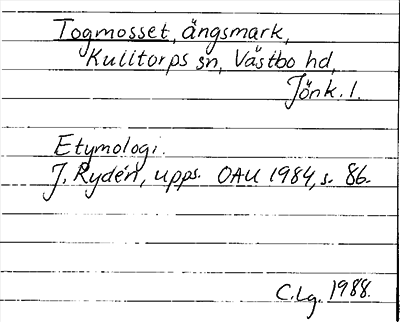 Togmosset, ängsmark,
Kulltorps sn, Västbo hd,
Jönk. l.
Etymologi.
J. Rydén, upps. OAU 1984, s. 86.
C.Lg. 1988.